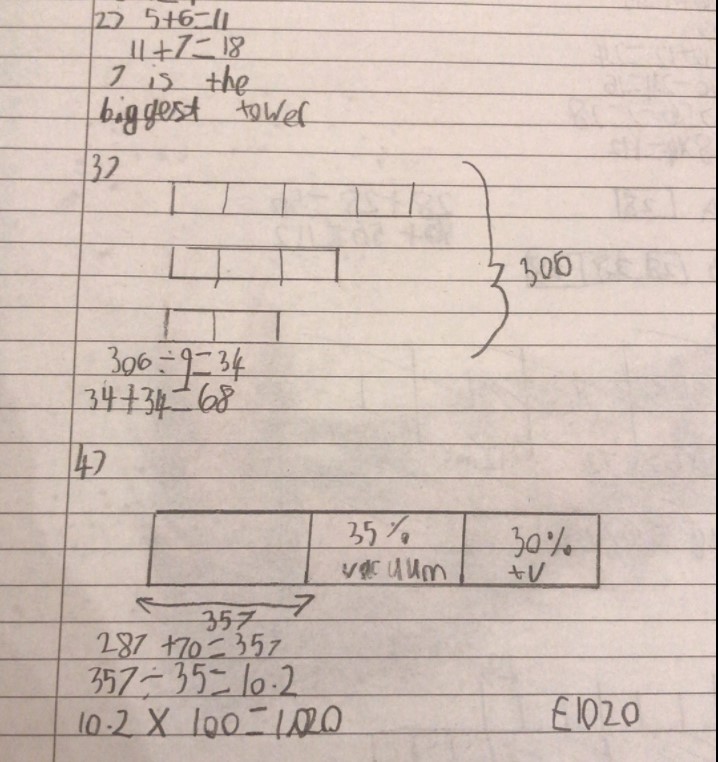 2) 5+6=11
11+7=18
7 is the
biggest tower
3)
306
306÷9=34
34+34=68
4)
35% 30%
vacuum tv
357
287 +70=357
357÷35=10.2
10.2 X 100=1020 £1020